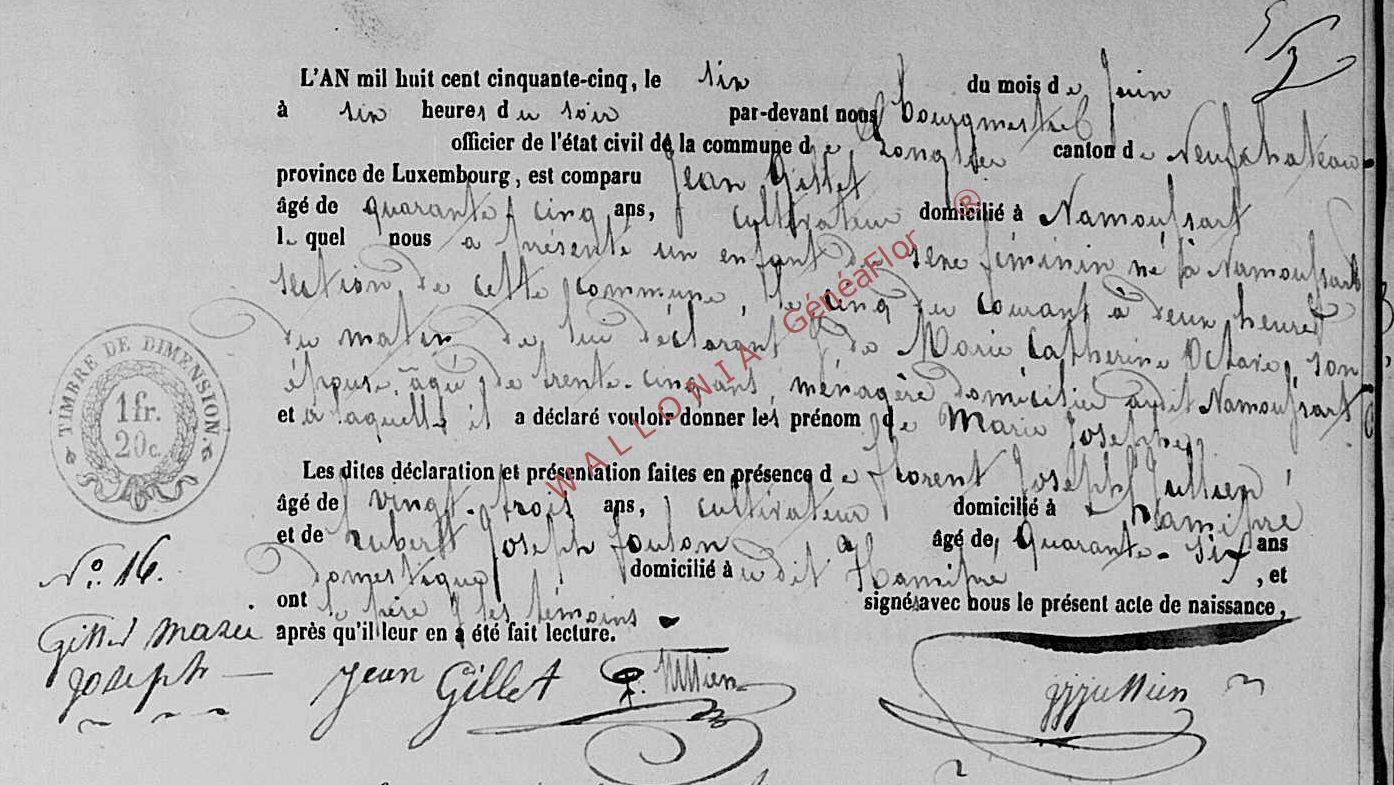 L'AN mil huit cent cinquante-cinq, le six du mois de Juin
à six heures du soir par-devant nous Bourgmestre
officier de l'état civil de la commune de Longlier canton de Neufchateau
province de Luxembourg, est comparu Jean Gillet
âgé de quarante cinq ans, cultivateur domicilié à Namoussart
lequel nous a présenté un enfant du sexe féminin né à Namoussart
section de cette commune, le cinq du courant à deux heures
du matin de lui déclarant & de Marie Catherine Octave, son
épouse, âgée de trente-cinq ans, ménagère domiciliée audit Namoussart
et à laquelle il a déclaré vouloir donner les prénom de Marie Josephe
Les dites déclaration et présentation faites en présence de Florent Joseph Jullien
âgé de vingt-trois ans, cultivateur domicilié à Hamipré
et de Hubert Joseph Foulon âgé de Quarante-six ans
domestique domicilié à udit Hamipré, et
ont le père & les témoins signé avec nous le présent acte de naissance,
après qu'il leur en a été fait lecture.
TIMBRE DE DIMENSION.
1 fr.
20 c.
No. 16.
Gillet Marie
Joseph
Jean Gillet
WALLONIA GénéaFlor ®